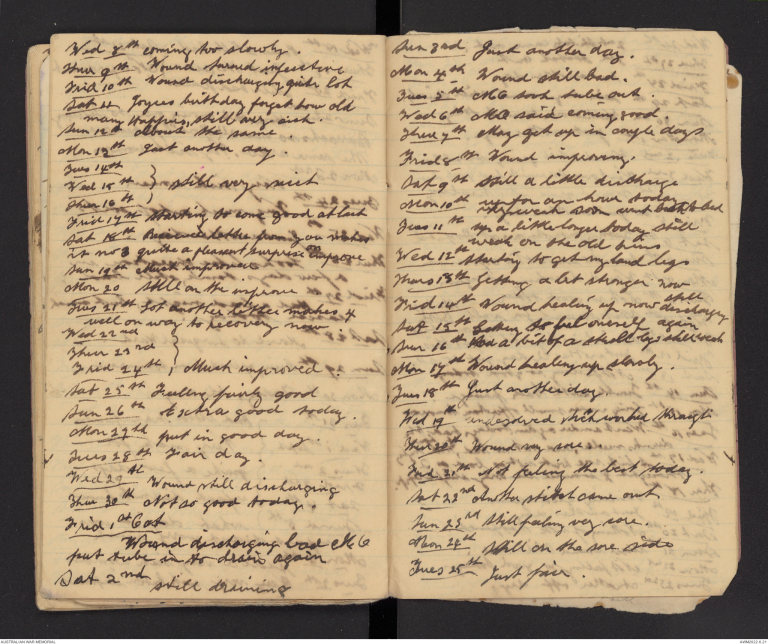 Wed 8th coming too slowly.
Thur 9th Wound turned infective
Frid 10th Wound discharging quite lot
Sat 11 Joyces birthday forget how old
many Happies, still very sick.
Sun 12th about the same.
Mon 13th Just another day.
Tues 14th
Wed 15th } still very sick
Thur 16th
Frid 17th starting to come good at last
Sat 18th Received letter from you
it no 3 quite a pleasant surprise improve
Sun 19th Much improved
Mon 20 still on the improve
Tues 21st Got another letter makes 4
well on way to recovery now.
Wed 22nd
Thur 23rd
Frid 24th } Much improved.
Sat 25th Feeling fairly good
Sun 26th Extra good today.
Mon 27th put in good day.
Tues 28th Fair day.
Wed 29th Wound still discharging
Thur 30th Not so good today.
Frid 1st Oct
Wound discharging bad MO
put tube in to drain again
Sat 2nd
still draining
Sun 3rd Just another day.
Mon 4th Wound still bad.
Tues 5th MO took tube out.
Wed 6th MO said coming good
Thur 7th May get up in couple days
Frid 8th Wound improving.
Sat 9th still a little discharge
Mon 10th up for an hour today
weak soon went back to bed
Tues 11th up a little longer today still
weak on the old pins
Wed 12th starting to get my land legs
Thurs 13th Getting a lot stronger now
Frid 14th Wound healing up now still
discharging
Sat 15th Getting to feel oneself again
Sun 16th Had a bit of a stroll legs still weak
Mon 17th Wound healing up slowly.
Tues 18th Just another day.
Wed 19th undesolved stich worked through
Thur 20th Wound very sore.
Frid 21th Not feeling the best today.
Sat 22nd Another stitch came out
Sun 23rd still feeling very sore.
Mon 24th still on the sore side
Tues 25th Just fair.
AUSTRALIAN WAR MEMORIAL